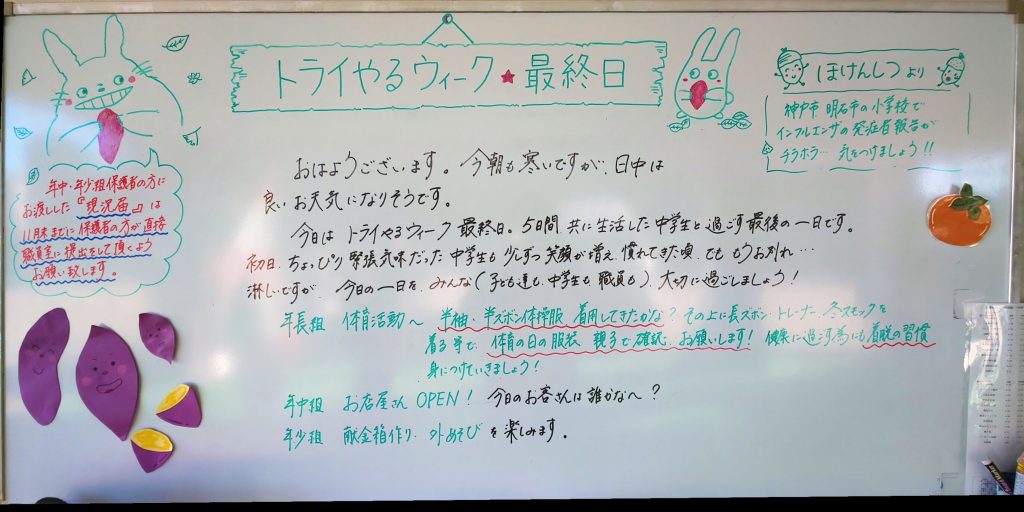 トライやるウィーク★最終日
ほけんしつより
神戸市 明石市の小学校で
インフルエンザの発症者報告が
チラホラ… 気をつけましょう!!
年中・年少組保護者の方に
お渡しした『現況届』は
11月末までに保護者の方が直接
職員室に提出をして頂くよう
お願い致します。
おはようございます。今朝も寒いですが、日中は
良いお天気になりそうです。
今日は トライやるウィーク 最終日。5日間、共に生活した中学生と過ごす最後の一日です。
初日、ちょっぴり緊張気味だった中学生も少しずつ笑顔が増え、慣れてきた頃、でも もうお別れ…
淋しいですが、今日の一日を、みんな(子ども達も、中学生も、職員も)、大切に過ごしましょう!
年長組 体育活動〜 半袖、半ズボン体操服、着用してきたかな? その上に長ズボン・トレーナー、冬スモックを
着る等で、体育の日の服装、親子で確認、お願いします! 健康に過ごす為にも着脱の習慣
身につけていきましょう!
年中組 お店屋さん OPEN! 今日のお客さんは誰かな〜?
年少組 献金箱作り、外あそび を楽しみます。